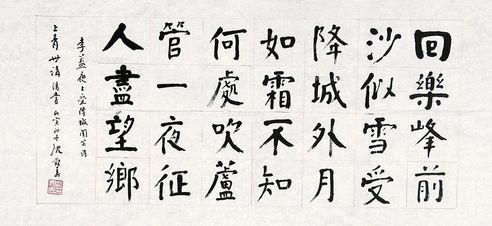 回樂峰前
沙似雪受
降城外月
如霜不知
何處吹蘆
管一夜征
人盡望鄉
李益夜上受降城聞笛詩